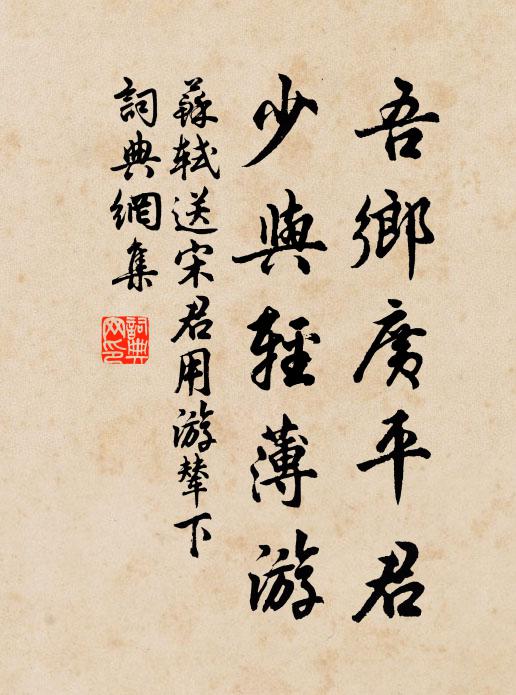 吾鄉廣平君
少與輕薄游
蘇軾送宋君用游輦下
詞典網集
詞典網印